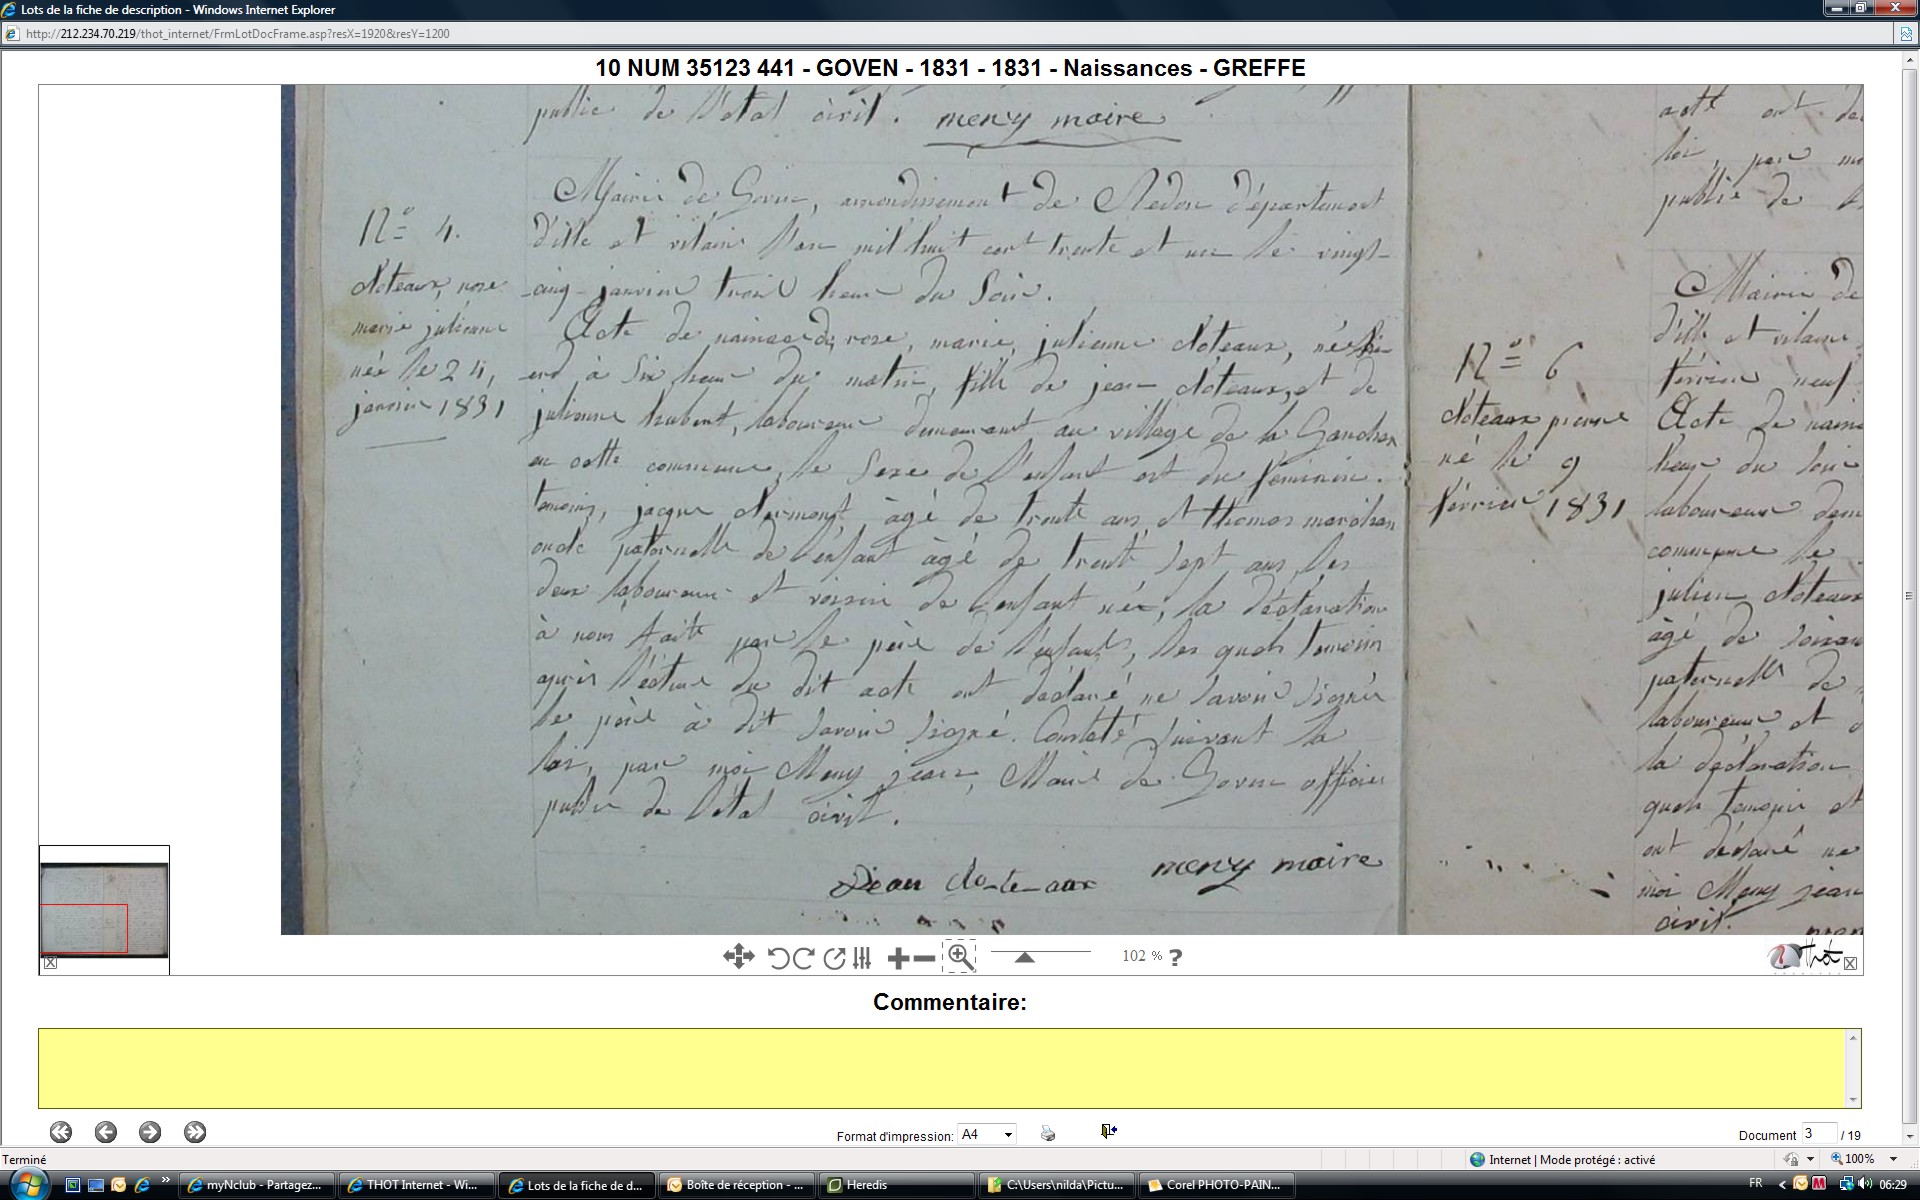 Lots de la fiche de description - Windows Internet Explorer
http://212.234.70.219/thot_internet/FrmLotDocFrame.asp?resX=1920&resY=1200
10 NUM 35123 441 - GOVEN - 1831 - 1831 - Naissances - GREFFE
public de l'état civil. meny maire
Mairie de Goven, arrondissement de Redon département
d'ille et vilaine l'an mil huit cent trente et un le vingt-
-cinq janvier trois heure du Soir.
Acte de naissance de rose, marie, julienne doteaux, née
à Six heure du matin, fille de jean doteaux, et de
julienne hubert, laboureur demeurant au village de la
en cette commune, le Sexe de l'enfant est du féminin.
temoins, jacque âgé de trente ans et thomas
oncle paternelle de l'enfant âgé de trente Sept ans, les
deux laboureurs et voisin de l'enfant née, la déclaration
à nous faite par le père de l'enfant, les quels temoin
après du dit acte ont déclaré ne Savoir Signer
le père à dit Savoir Signé. Constaté Suivant la
loi, par moi Meny jean, Maire de Goven officier
public de l'état civil.
Jean do-te-aux meny maire
N° 4.
doteaux, rose
marie julienne
née le 24,
janvier 1831
N° 6
doteaux pierre
né le 9
février 1831
acte ont
loi, par
public de
Mairie de
d'ille et vilaine
février neuf
Acte de
heure du Soir
laboureur
commune le
julien doteaux
âgé de
paternelle de
laboureur et
la déclaration
quels temoin et
ont déclaré ne
moi Meny jean
civil.
102 % ?
Thot
Commentaire:
Format d'impression: A4
Document 3 / 19
Terminé
Internet | Mode protégé : activé
100%
myNclub - Partagez...
THOT Internet - Wi...
Lots de la fiche de d...
Boîte de réception - ...
Heredis
C:\Users\nilda\Pictu...
Corel PHOTO-PAIN...
FR
06:29